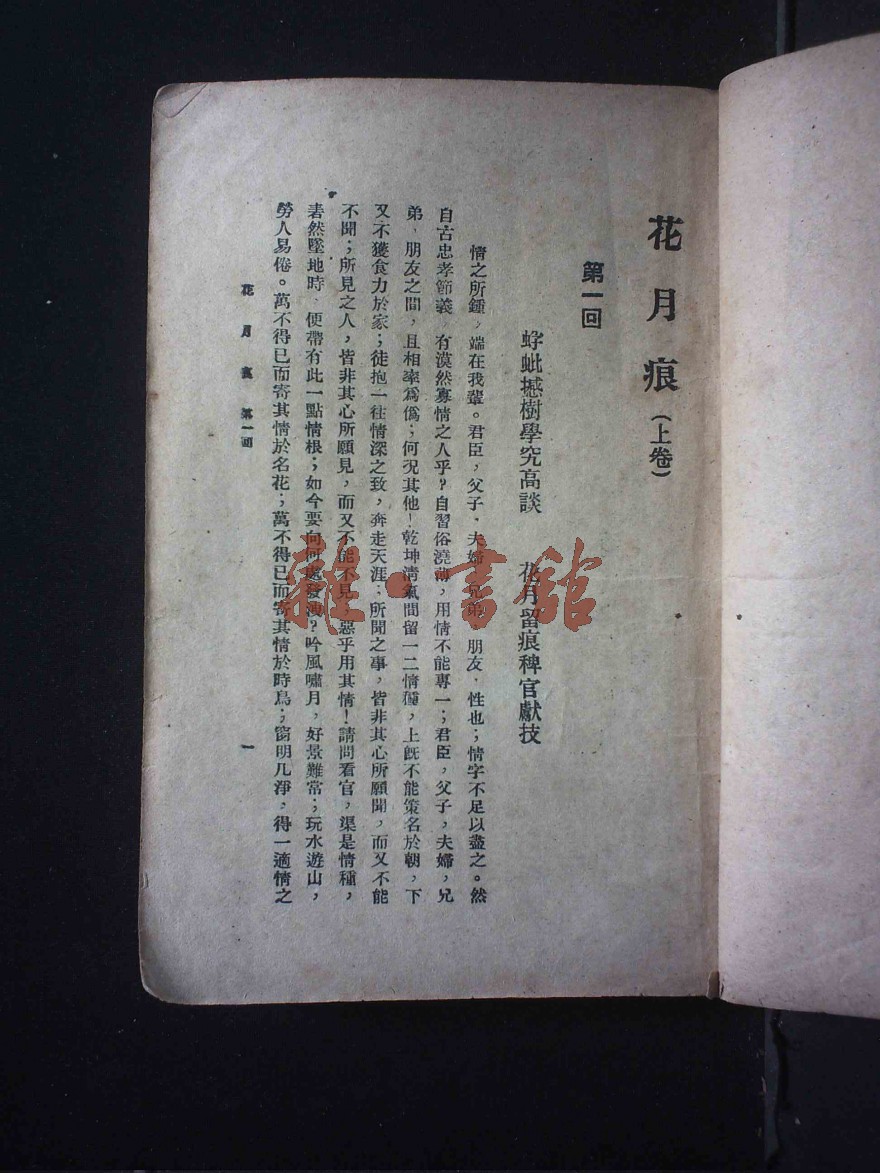 花月痕（上卷）
第一回
蜉蚍撼樹學究高談　花月留痕稗官獻技
情之所鍾，端在我輩。君臣，父子，夫婦，兄弟，朋友，性也；情字不足以盡之。然
自古忠孝節義，有漠然寡情之人乎？自習俗澆薄，用情不能專一；君臣，父子，夫婦，兄
弟，朋友之間，且相率爲僞；何況其他！乾坤淸氣間留一二情種，上旣不能策名於朝，下
又不獲食力於家；徒抱一往情深之致，奔走天涯；所聞之事，皆非其心所願聞，而又不能
不聞；所見之人，皆非其心所願見，而又不能不見，惡乎用其情！請問看官，渠是情種，
砉然墜地時，便帶有此一點情根；如今要向何處發洩？吟風嘯月，好景難常；玩水遊山，
勞人易倦。萬不得已而寄其情於名花；萬不得已而寄其情於時鳥；窗明几淨，得一適情之
花月痕　第一回
一
雜·書館